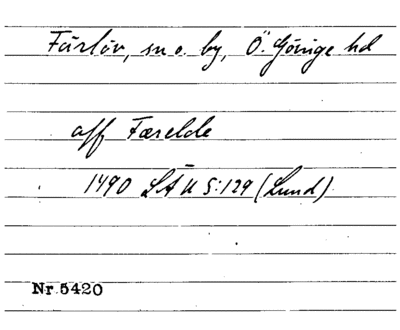 Färlöv, sn o. by, Ö. Göinge hd
aff Færelde
1490 LÄU 5:129 (Lund)
Nr 5420